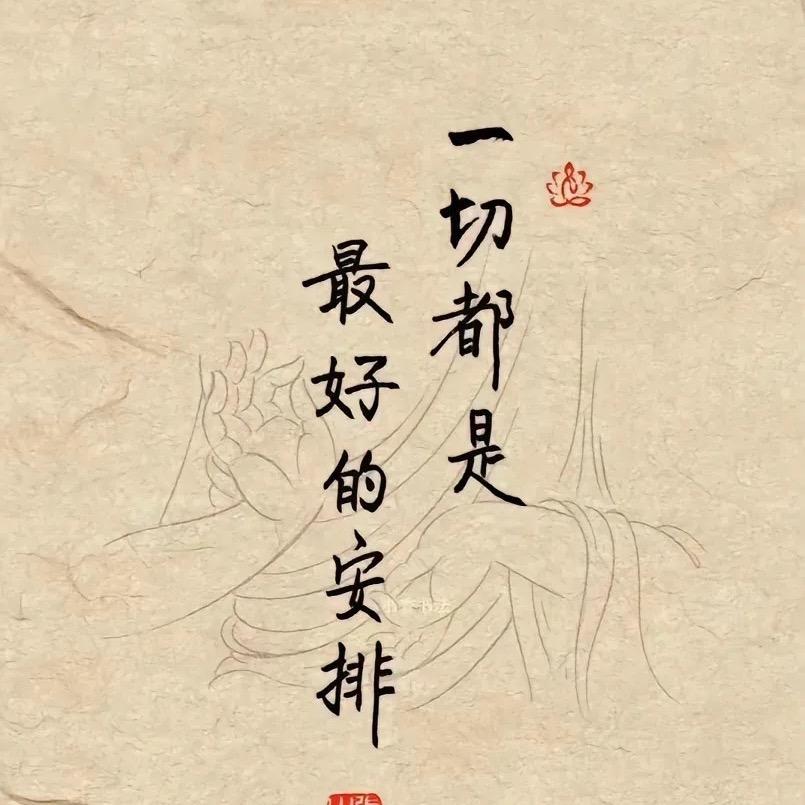 一切都是
最好的安排